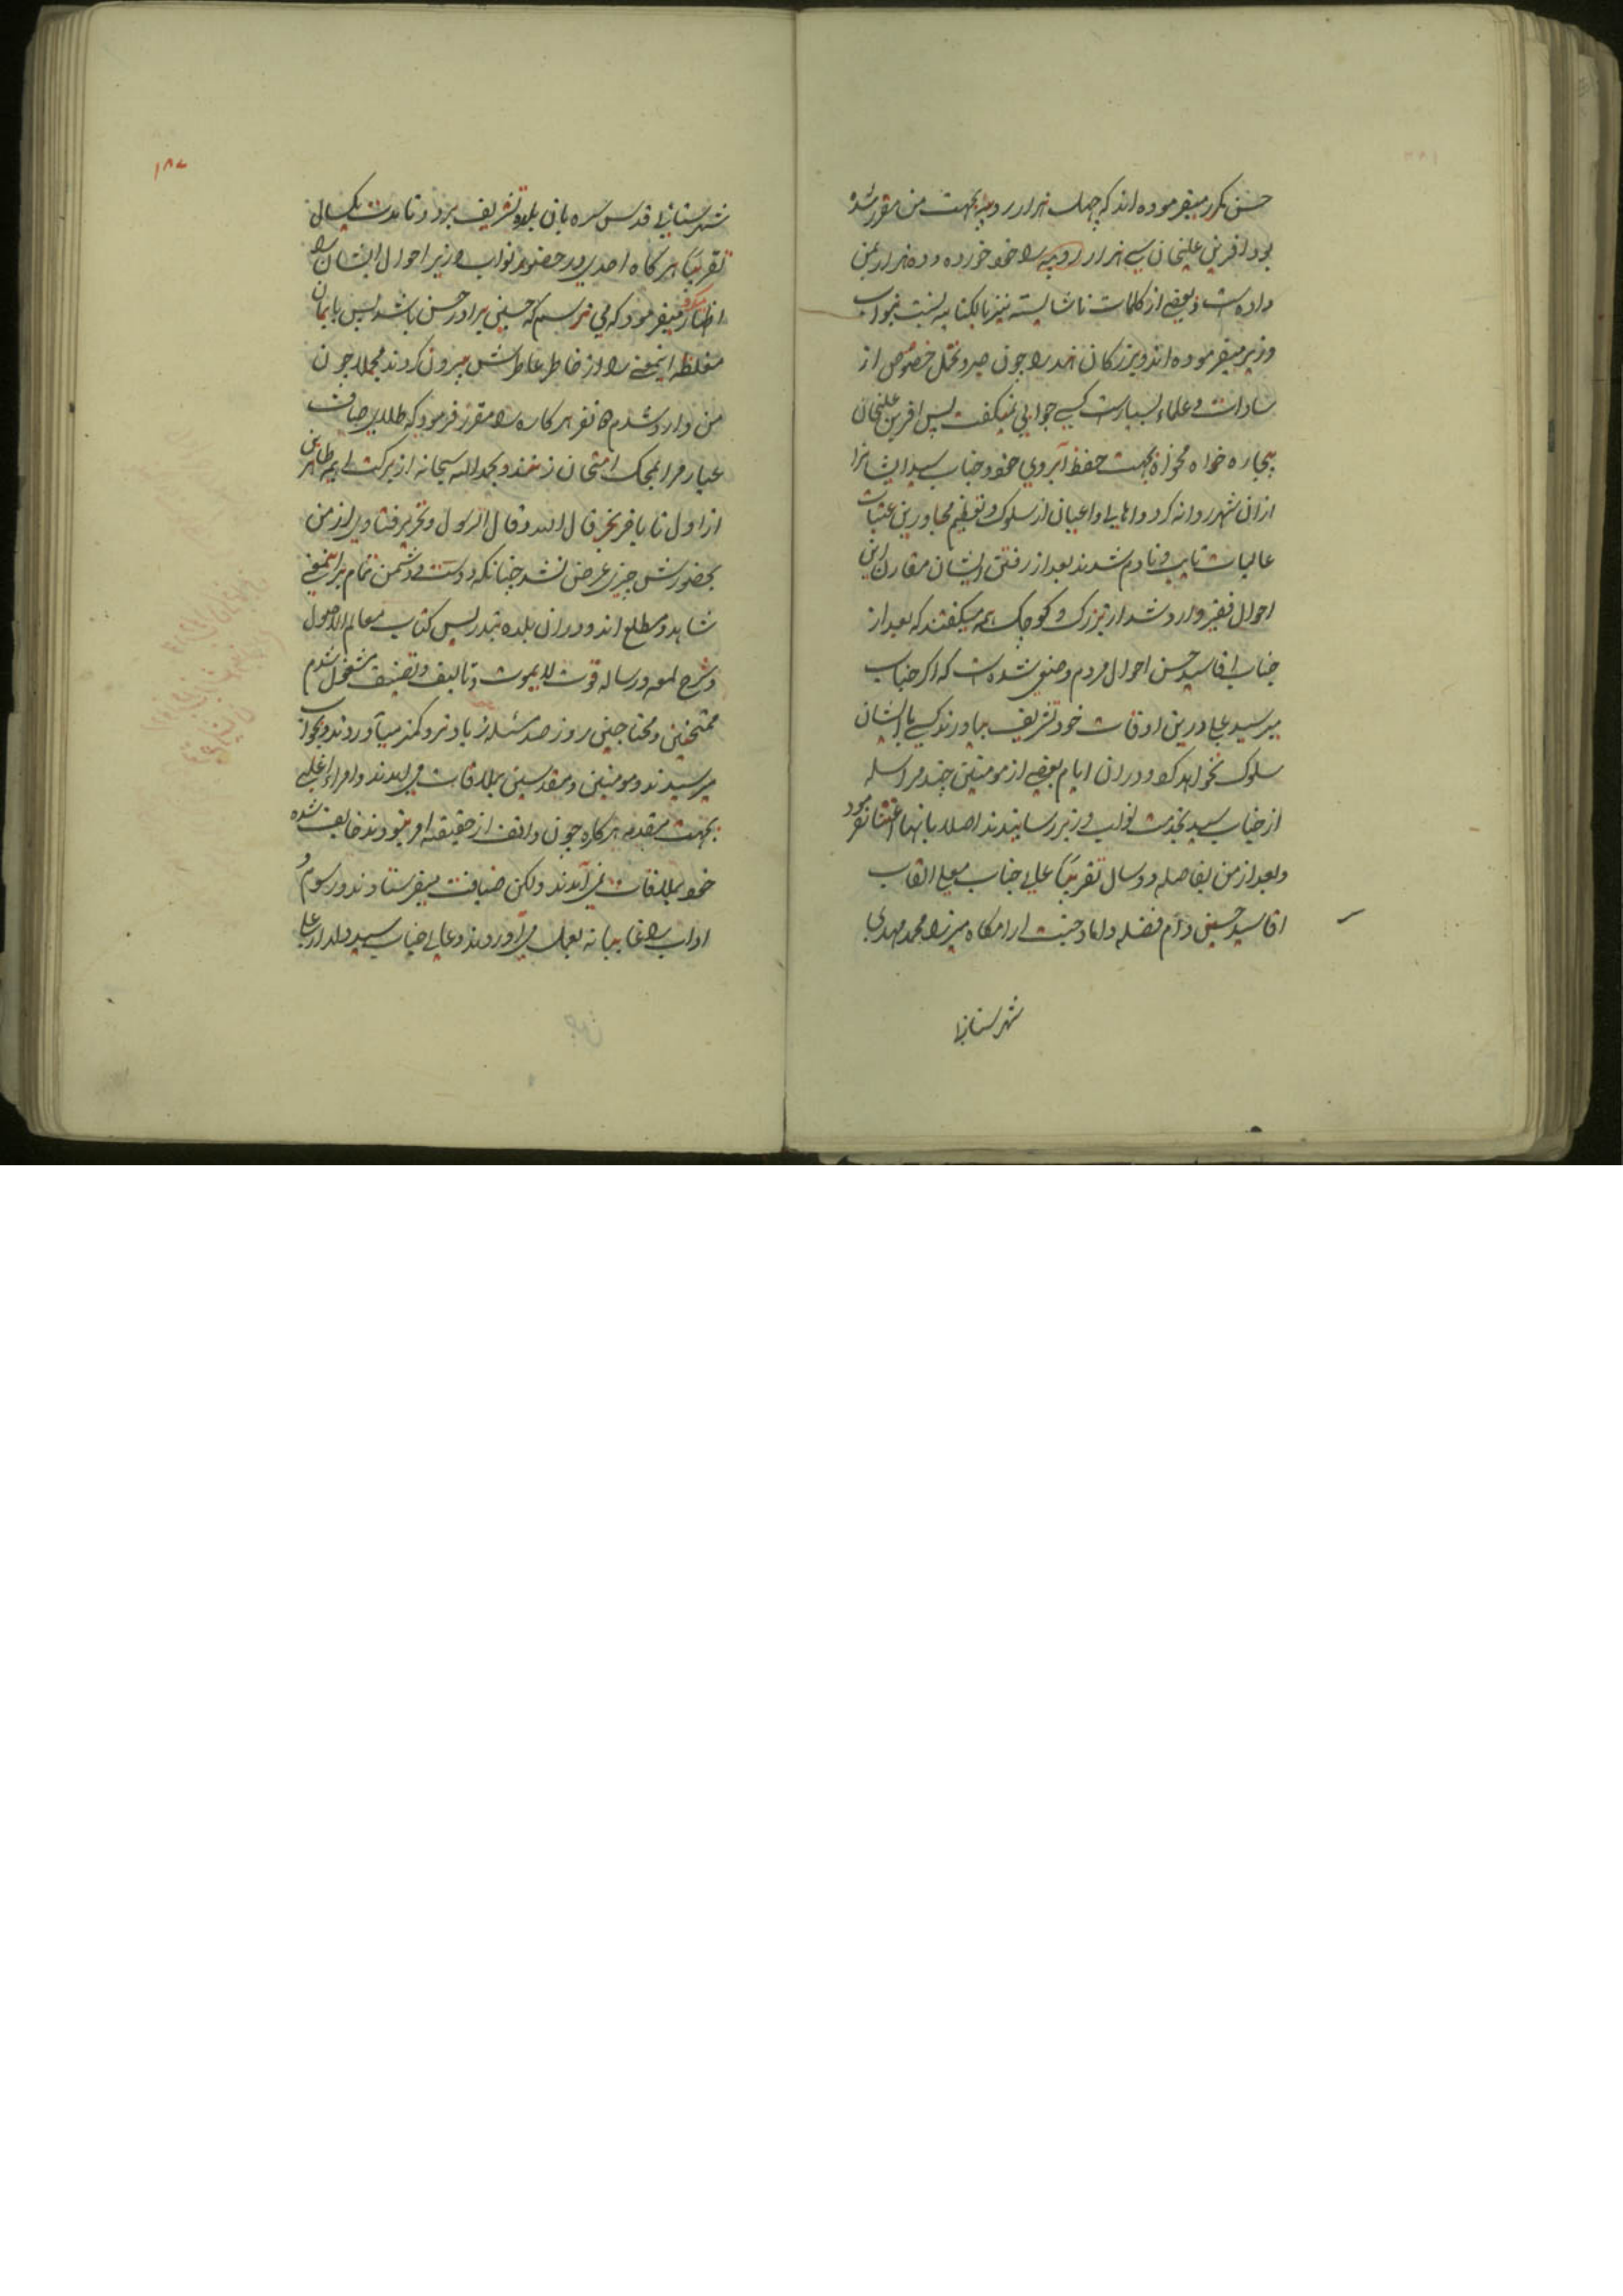 حسن مکرر میفرموده اند که چهل هزار روپیه بجهت من مقرر شده
بود افرین علیخان سی هزار روپیه را خود خورده و ده هزار بمن
داده است و بعضی از کلمات ناشایسته نیز بالکنایه نسبت بنواب
وزیر میفرموده اند و بزرگان هند را چون صبر و تحمل خصوص از
سادات و علماء بسیارست کسی جوابی نمیگفت پس افرین علیخان
بیچاره خواه مخواه بجهت حفظ آبروی خود جناب سید ایشانرا
از ان شهر روانه کرد و اهالی و اعیان از سلوک و تعظیم مجاورین عتبات
عالیات تایب و نادم شدند بعد از رفتن ایشان مقارن این
احوال فقیر وارد شد از بزرک و کوچک همه میکفتند که بعد از
جناب اقا سید حسن احوال مردم و ضیق شده است که اکر جناب
میر سید علی درین اوقات خود تشریف بیاورند کسی با ایشان
سلوک نخواهد کرد و دران ایام بعضی از مومنین چند مراسله
از جناب سید بخدمت نواب وزیر رسانیدند اصلا بانها اعتنا نفرمود
و بعد از من بفاصله دو سال تقریبا عالی جناب معلی القاب
اقا سید حسین دام فضله داماد جنت ارامکاه میرزا محمد مهدی
شهرستانی
۱۸۷
شهرستانی قدس سره بان بلده تشریف برد و تا مدت یکسال
تقریبا هر کاه احدی در حضور نواب وزیر احوال ایشان را
اظهار میکرد میفرمود که می ترسم که حسین برادر حسن باشد پس بایمان
مغلظه اینمعنی را از خاطر عاطرش بیرون کردند مجملا چون
من وارد شدم نفر هر کاره را مقرر فرمود که طلای صافی
عیار مرا بمحک امتحان زدند و بحمد الله سبحانه از برکت ایمه طاهرین
از اول تا باخر بجز قال الله و قال الرسول و تحریر فتاوی از من
بحضورش چیزی عرض نشد چنانکه دوست و دشمن تمام برینمعنی
شاهد و مطلع اند و دران بلده بتدریس کتاب معالم الاصول
و شرح لمعه و رساله قوت لایموت و تالیف و تصنیف مشغول شدم
ممتحنین و محتاجین هر روز صد مسئله زیادتر و کمتر میآوردند و بجواب
میرسیدند و مومنین و مقدسین بملاقات می امدند و امراء اغلبی
بجهت مقدمه هر کاره چون واقف از حقیقه امر نبودند خایف شده
خود بملاقات نمی آمدند ولکن ضیافت میفرستادند و رسوم و
اداب را غایبانه بعمل می آوردند و عالی جناب سید دلدار علی